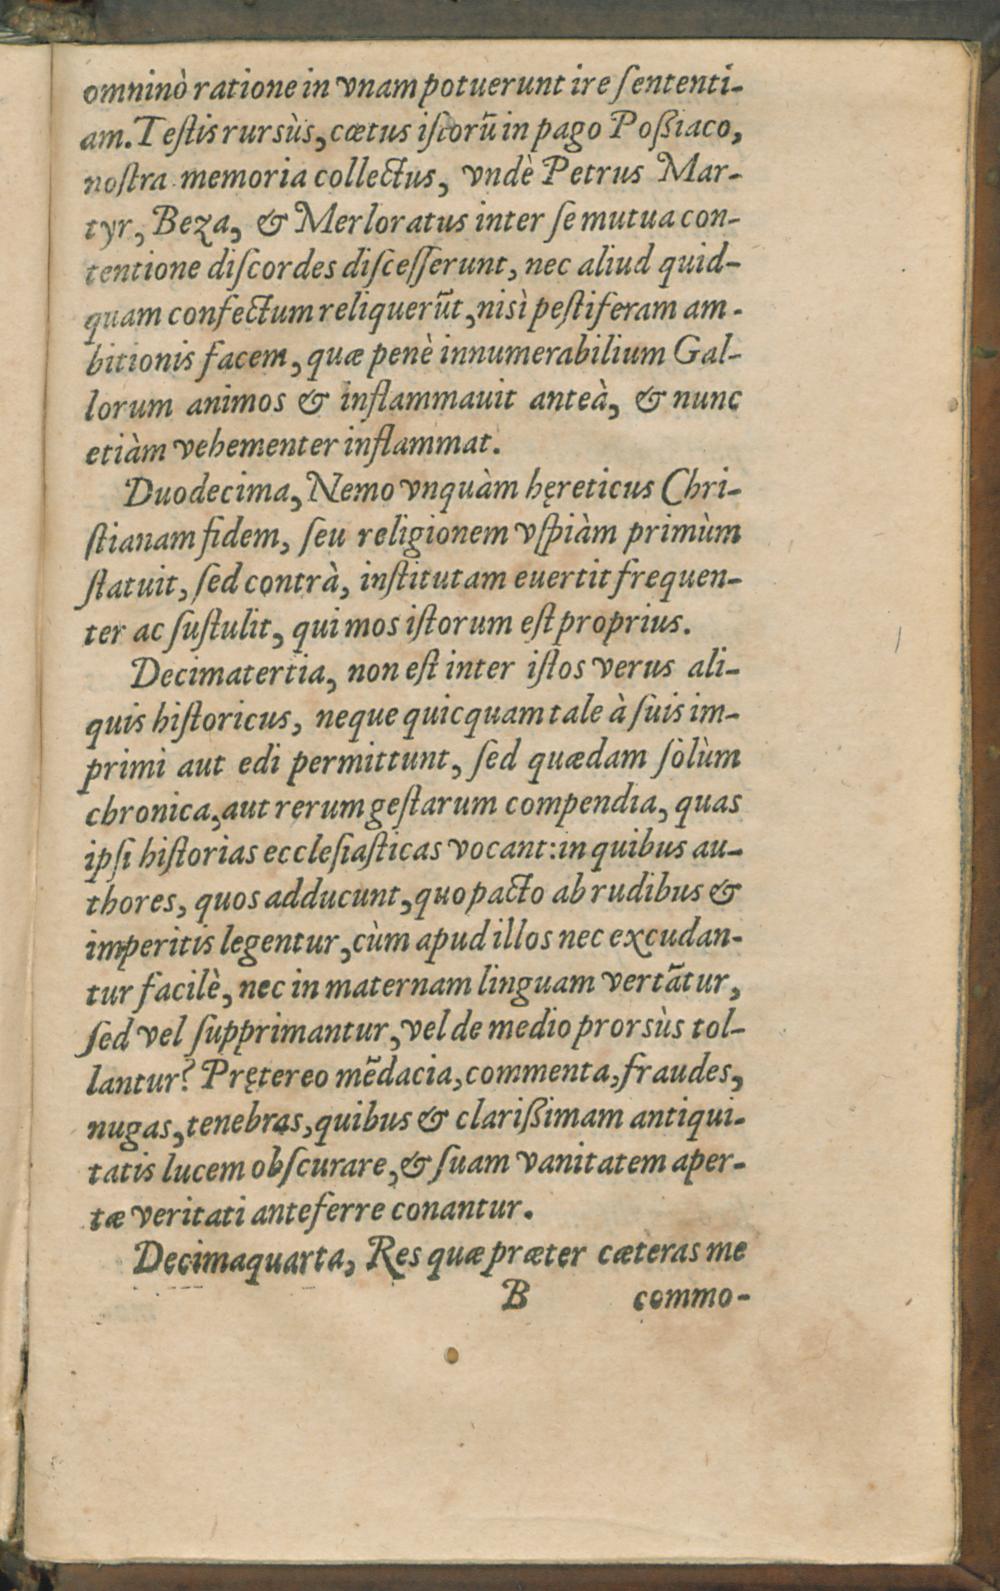 omninò ratione in vnam potuerunt ire ſententi-
am. Teſtis rursùs, cœtus iſtorũ in pago Poßiaco,
noſtra memoria collectus, vndè Petrus Mar-
tyr, Beza, & Merloratus inter ſe mutua con-
tentione diſcordes diſceſſerunt, nec aliud quid-
quam confectum reliquerũt, niſì peſtiferam am-
bitionis facem, quæ penè innumerabilium Gal-
lorum animos & inflammauit anteà, & nunc
etiàm vehementer inflammat.
Duodecima, Nemo vnquàm hęreticus Chri-
ſtianam fidem, ſeu religionem vſpiàm primùm
ſtatuit, ſed contrà, inſtitutam euertit frequen-
ter ac ſuſtulit, qui mos iſtorum eſt proprius.
Decimatertia, non eſt inter iſtos verus ali-
quis hiſtoricus, neque quicquam tale à ſuis im-
primi aut edi permittunt, ſed quædam ſolùm
chronica, aut rerum geſtarum compendia, quas
ipſi hiſtorias eccleſiaſticas vocant: in quibus au-
thores, quos adducunt, quo pacto ab rudibus &
imperitis legentur, cùm apud illos nec excudan-
tur facilè, nec in maternam linguam vertãtur,
ſed vel ſupprimantur, vel de medio prorsùs tol-
lantur? Prętereo mẽdacia, commenta, fraudes,
nugas, tenebras, quibus & clarißimam antiqui-
tatis lucem obſcurare, & ſuam vanitatem aper-
tæ veritati anteferre conantur.
Decimaquarta, Res quæ præter cæteras me
B commo-